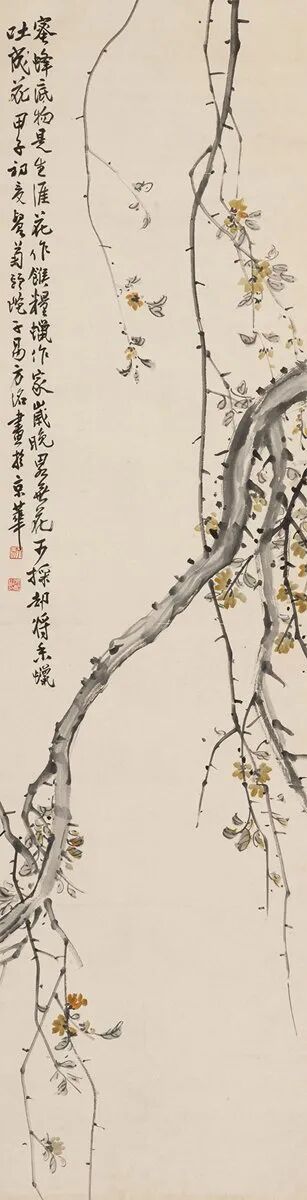 蜜蜂底物是生涯花作餱糧蠟作家歲晚畧無花可採却將香蠟
吐成花甲子初夏餐菊頭陀子易方洺畫於京華